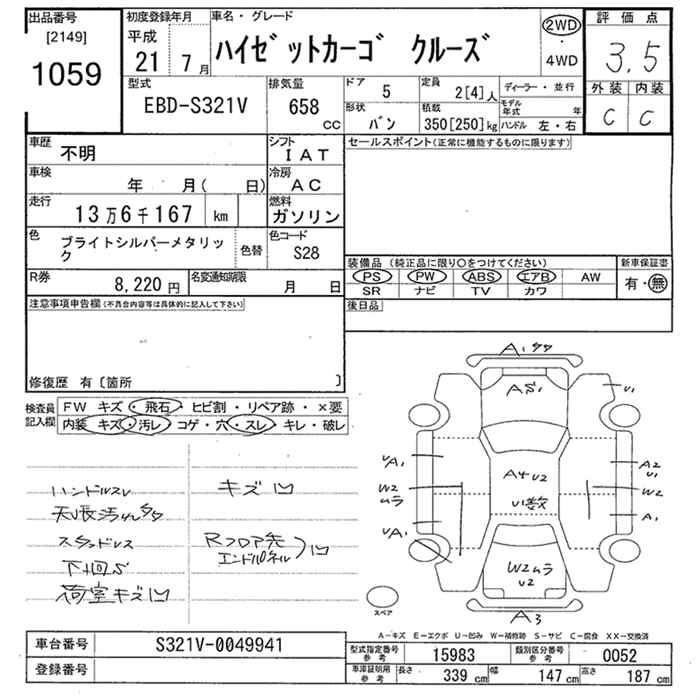 出品番号
[2149]
1059
初度登録年月
平成
21 7月
車名・グレード
ハイゼットカーゴ クルーズ
2WD
・
4WD
評価点
3.5
外装 内装
C C
型式
EBD-S321V
排気量
658
CC
ドア
5
定員
2[4]人
ディーラー・並行
形状
バン
積載
350[250]kg
モデル年式 年
ハンドル 左・右
車歴
不明
シフト
IAT
車検
年 月( 日)
冷房
AC
走行
13万6千167 km
燃料
ガソリン
色
ブライトシルバーメタリック
色替
色コード
S28
R券
8,220円
名変通知期限
月 日
セールスポイント(正常に機能するものに限ります)
装備品 (純正品に限り〇をつけてください)
新車保証書
PS PW ABS エアB AW
SR ナビ TV カワ
有・無
後日品
注意事項申告欄(不具合内容等は具体的に記入して下さい)
修復歴 有〔箇所 〕
検査員
記入欄
FW キズ・飛石・ヒビ割・リペア跡・×要
内装 キズ・汚レ・コゲ・穴・スレ・キレ・破レ
ハンドルスレ
キズ凹
スタッドレス
Rフロア先
エンドパネル
凹
下回S
荷室キズ凹
A1
AS1
U1
UA1
A4 U2
U1数
A2
U1
W2
ムラ
W2
UA1
A1
W2ムラ
U2
A3
スペア
A-キズ E-エクボ U-凹み W-補修跡 S-サビ C-腐食 XX-交換済
車台番号
S321V-0049941
登録番号
型式指定番号
参考
15983
類別区分番号
参考
0052
車庫証明用
参考
長さ
339 cm
幅
147 cm
高さ
187 cm